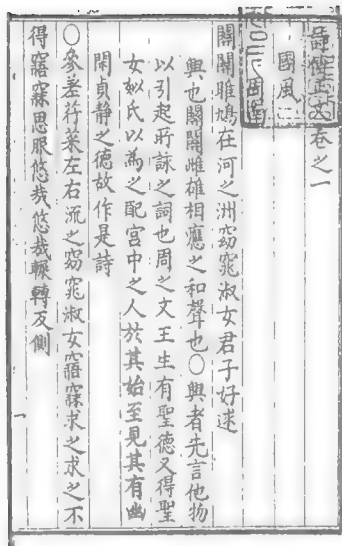 詩傳正文卷之一
國風
關關雎鳩在河之洲窈窕淑女君子好逑
興也關關雌雄相應之和聲也○興者先言他物
以引起所詠之詞也周之文王生有聖德又得聖
女姒氏以為之配宮中之人於其始至見其有幽
閑貞静之德故作是詩
○參差荇菜左右流之窈窕淑女寤寐求之求之不
得寤寐思服悠哉悠哉輾轉反側
一